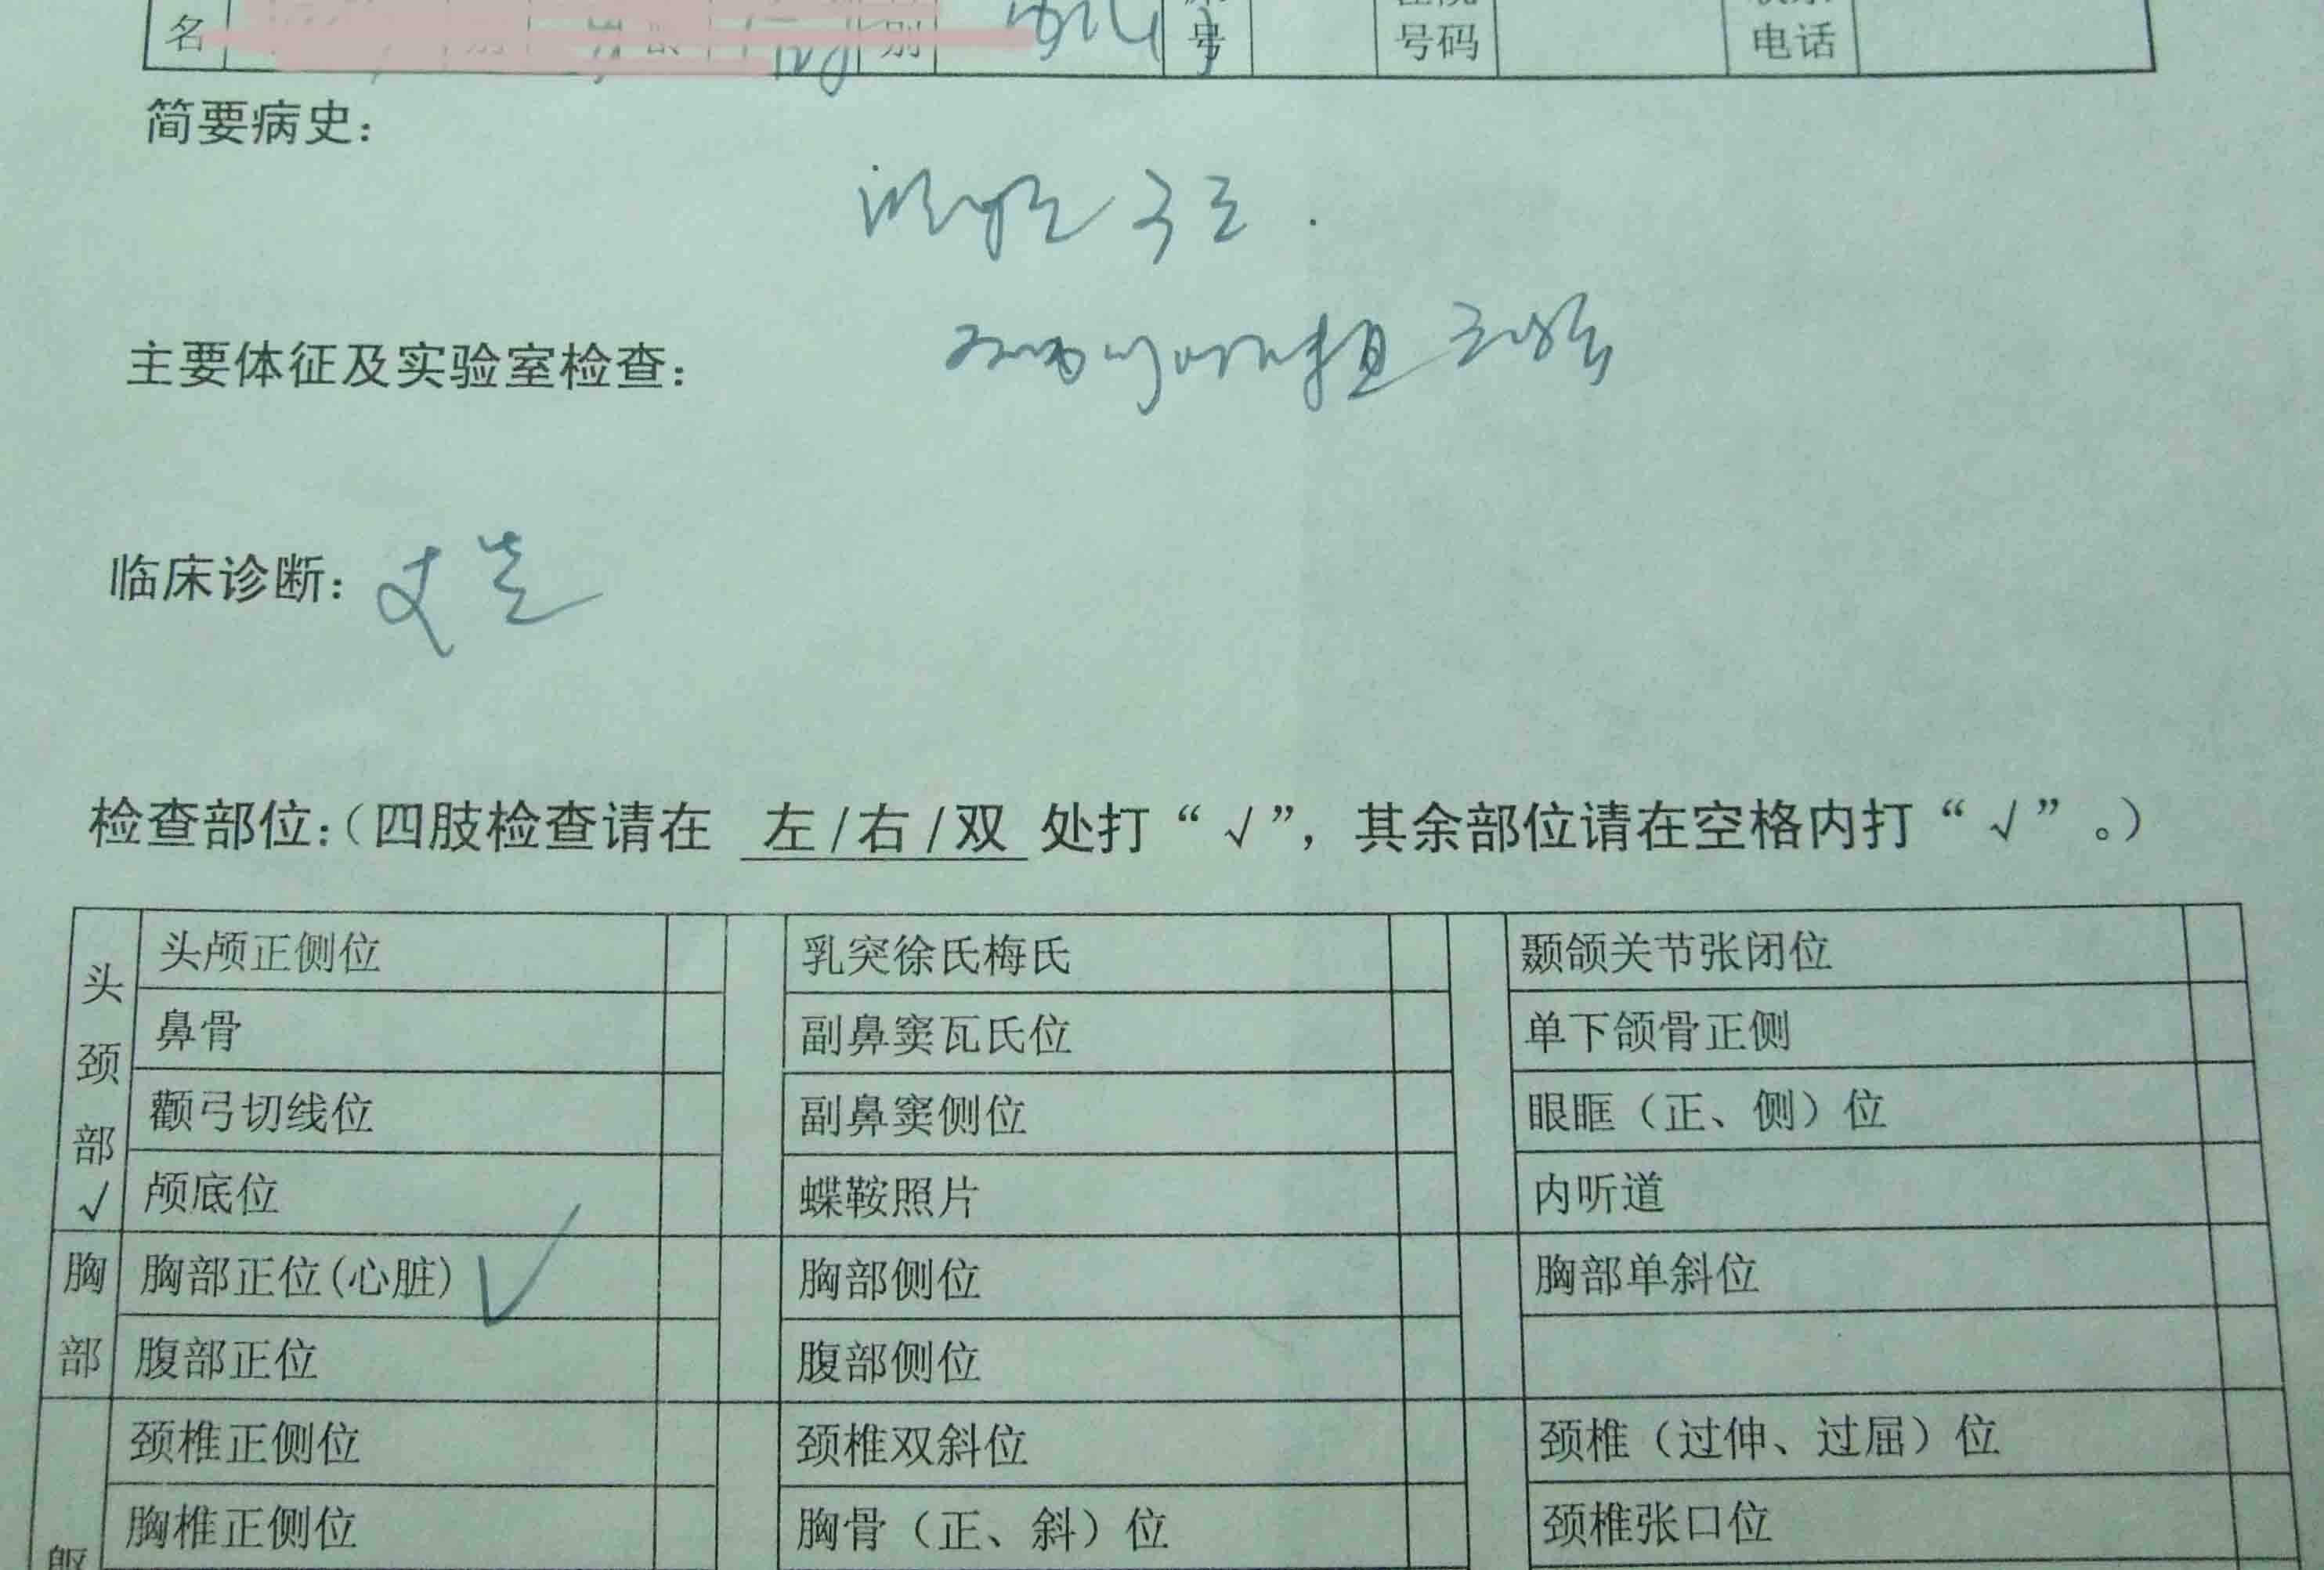 名 别 号 号码 电话
简要病史：
主要体征及实验室检查：
临床诊断：支气
检查部位：（四肢检查请在 左/右/双 处打“√”，其余部位请在空格内打“√”。）
头颈部√
头颅正侧位 乳突徐氏梅氏 颞颌关节张闭位
鼻骨 副鼻窦瓦氏位 单下颌骨正侧
颧弓切线位 副鼻窦侧位 眼眶（正、侧）位
颅底位 蝶鞍照片 内听道
胸部
胸部正位(心脏) √ 胸部侧位 胸部单斜位
腹部正位 腹部侧位
颈椎正侧位 颈椎双斜位 颈椎（过伸、过屈）位
躯 胸椎正侧位 胸骨（正、斜）位 颈椎张口位